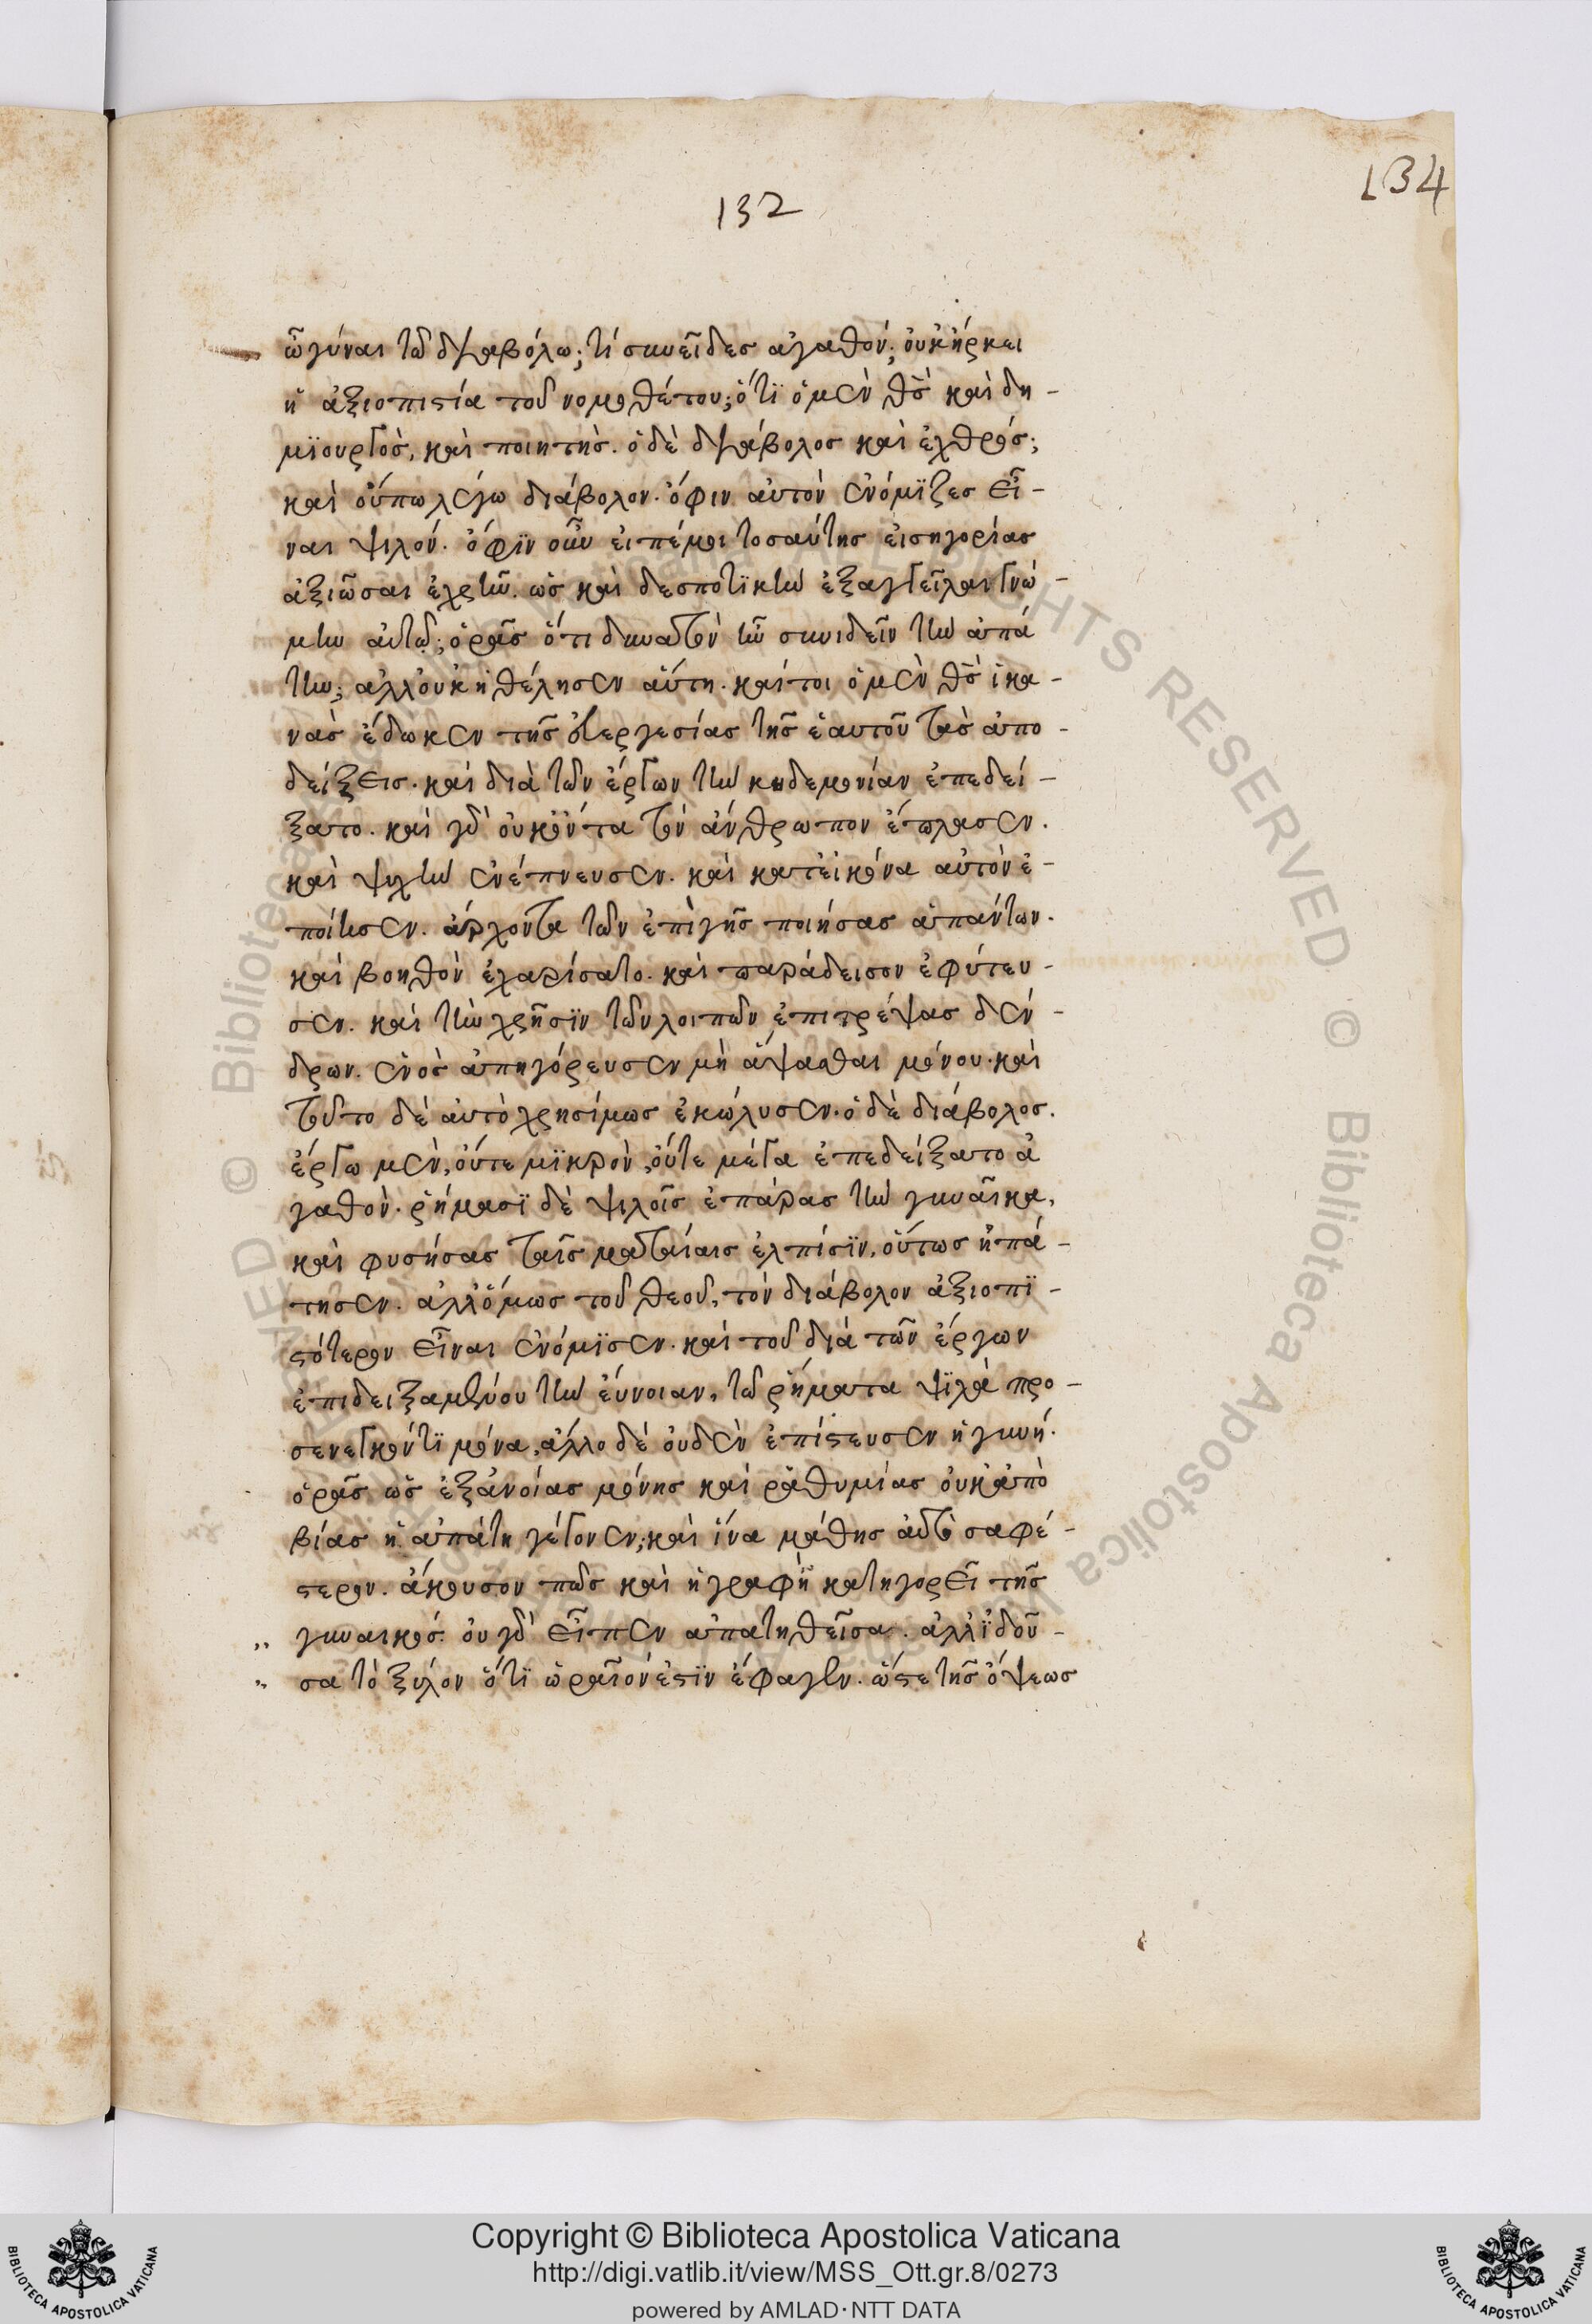 134
132
ὦ γύναι τῶ διαβόλω; τί συνεῖδες ἀγαθόν; οὐκ ἤρκει
ἡ ἀξιοπιστία τοῦ νομοθέτου; ὅτι ὁ μὲν θς καὶ δη -
μϊουργὸς, καὶ ποιητής. ὁ δὲ διάβολος καὶ ἐχθρός;
καὶ οὔπω λέγω διάβολον. ὄφιν αὐτὸν ἐνόμϊζες εἶ -
ναι ψιλόν. ὄφϊν οὖν εἰπέ μοι τοσαύτης εἰσηγορίας
ἀξιῶσαι ἐχρῆν. ὡς καὶ δεσποτϊκὴν ἐξαγγεῖλαι γνώ -
μην αὐτῷ; ὁρᾶς ὅτι δυνατὸν ἦν συνιδεῖν τὴν ἀπά
την; ἀλλ' οὐκ ἠθέλησεν αὕτη. καίτοι ὁ μὲν θς ἱκα -
νὰς ἔδωκεν τῆς εὐεργεσίας τῆς ἑαυτοῦ τὰς ἀπο -
δείξεις. καὶ διὰ τῶν ἔργων τὴν κηδεμονίαν ἐπεδεί -
ξατο. καὶ γὰρ οὐκ ὄντα τὸν ἄνθρωπον ἔπλασεν.
καὶ ψυχὴν ἐνέπνευσεν. καὶ κατ' εἰκόνα αὐτὸν ἐ -
ποίησεν. ἄρχοντα τῶν ἐπὶ γῆς ποιήσας ἁπάντων.
καὶ βοηθὸν ἐχαρίσατο. καὶ παράδεισον ἐφύτευ -
σεν. καὶ τὴν χρῆσϊν τῶν λοιπῶν ἐπιτρέψας δέν -
δρων. ἑνὸς ἀπηγόρευσεν μὴ ἅψασθαι μόνου. καὶ
τοῦτο δὲ αὐτὸ χρησίμως ἐκώλυσεν. ὁ δὲ διάβολος.
ἔργω μὲν, οὔτε μϊκρὸν, οὔτε μέγα ἐπεδείξατο ἀ
γαθόν. ῥήμασϊ δὲ ψιλοῖς ἐπάρας τὴν γυναῖκα,
καὶ φυσήσας ταῖς ματαίαις ἐλπίσϊν, οὕτως ἠπά -
τησεν. ἀλλ' ὅμως τοῦ θεοῦ, τὸν διάβολον ἀξιοπϊ -
στότερον εἶναι ἐνόμϊσεν. καὶ τοῦ διὰ τῶν ἔργων
ἐπιδειξαμένου τὴν εὔνοιαν, τῶ ῥήματα ψϊλὰ προ -
σενεγκόντϊ μόνα, ἄλλο δὲ οὐδὲν ἐπίστευσεν ἡ γυνή.
ὁρᾶς ὡς ἐξ ἀνοίας μόνης καὶ ῥαθυμίας οὐκ ἀπὸ
βίας ἡ ἀπάτη γέγονεν; καὶ ἵνα μάθης αὐτὸ σαφέ -
στερον. ἄκουσον πῶς καὶ ἡ γραφὴ κατηγορεῖ τῆς
,, γυναικός. οὐ γὰρ εἶπεν ἀπατηθεῖσα. ἀλλ' ἰδοῦ -
,, σα τὸ ξύλον ὅτϊ ὡραῖόν ἐστϊν ἔφαγεν. ὥστε τῆς ὄψεως
© Biblioteca Apostolica Vaticana
ALL RIGHTS RESERVED
Copyright © Biblioteca Apostolica Vaticana
http://digi.vatlib.it/view/MSS_Ott.gr.8/0273
powered by AMLAD·NTT DATA
BIBLIOTECA APOSTOLICA VATICANA
BIBLIOTECA APOSTOLICA VATICANA